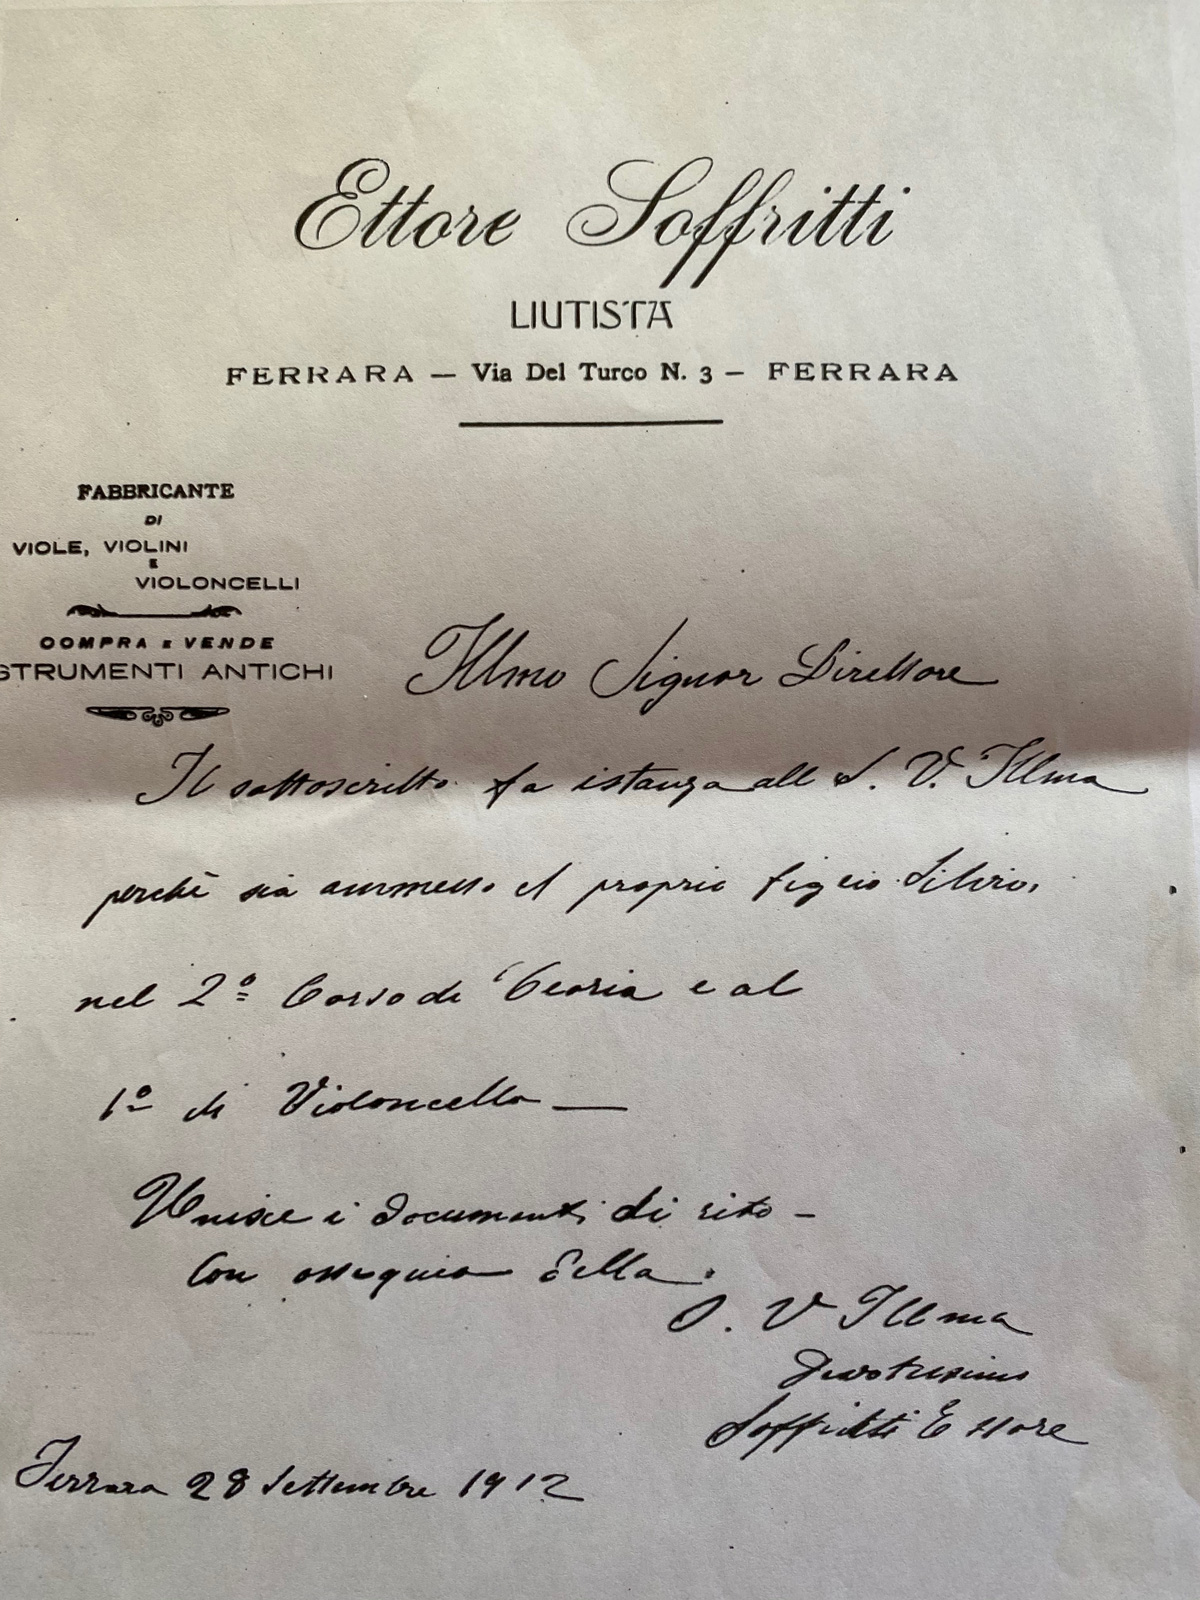 Ettore Soffritti
LIUTISTA
FERRARA — Via Del Turco N. 3 — FERRARA
FABBRICANTE
DI
VIOLE, VIOLINI
E
VIOLONCELLI
COMPRA E VENDE
STRUMENTI ANTICHI
Illmo Signor Direttore
Il sottoscritto fa istanza all S. V. Illma
perchè sia ammesso il proprio figlio Silvio,
nel 2º Corso di Teoria e al
1º di Violoncello —
Unisce i documenti di rito —
Con ossequio Della
S. V Illma
Devotissimo
Soffritti Ettore
Ferrara 28 Settembre 1912